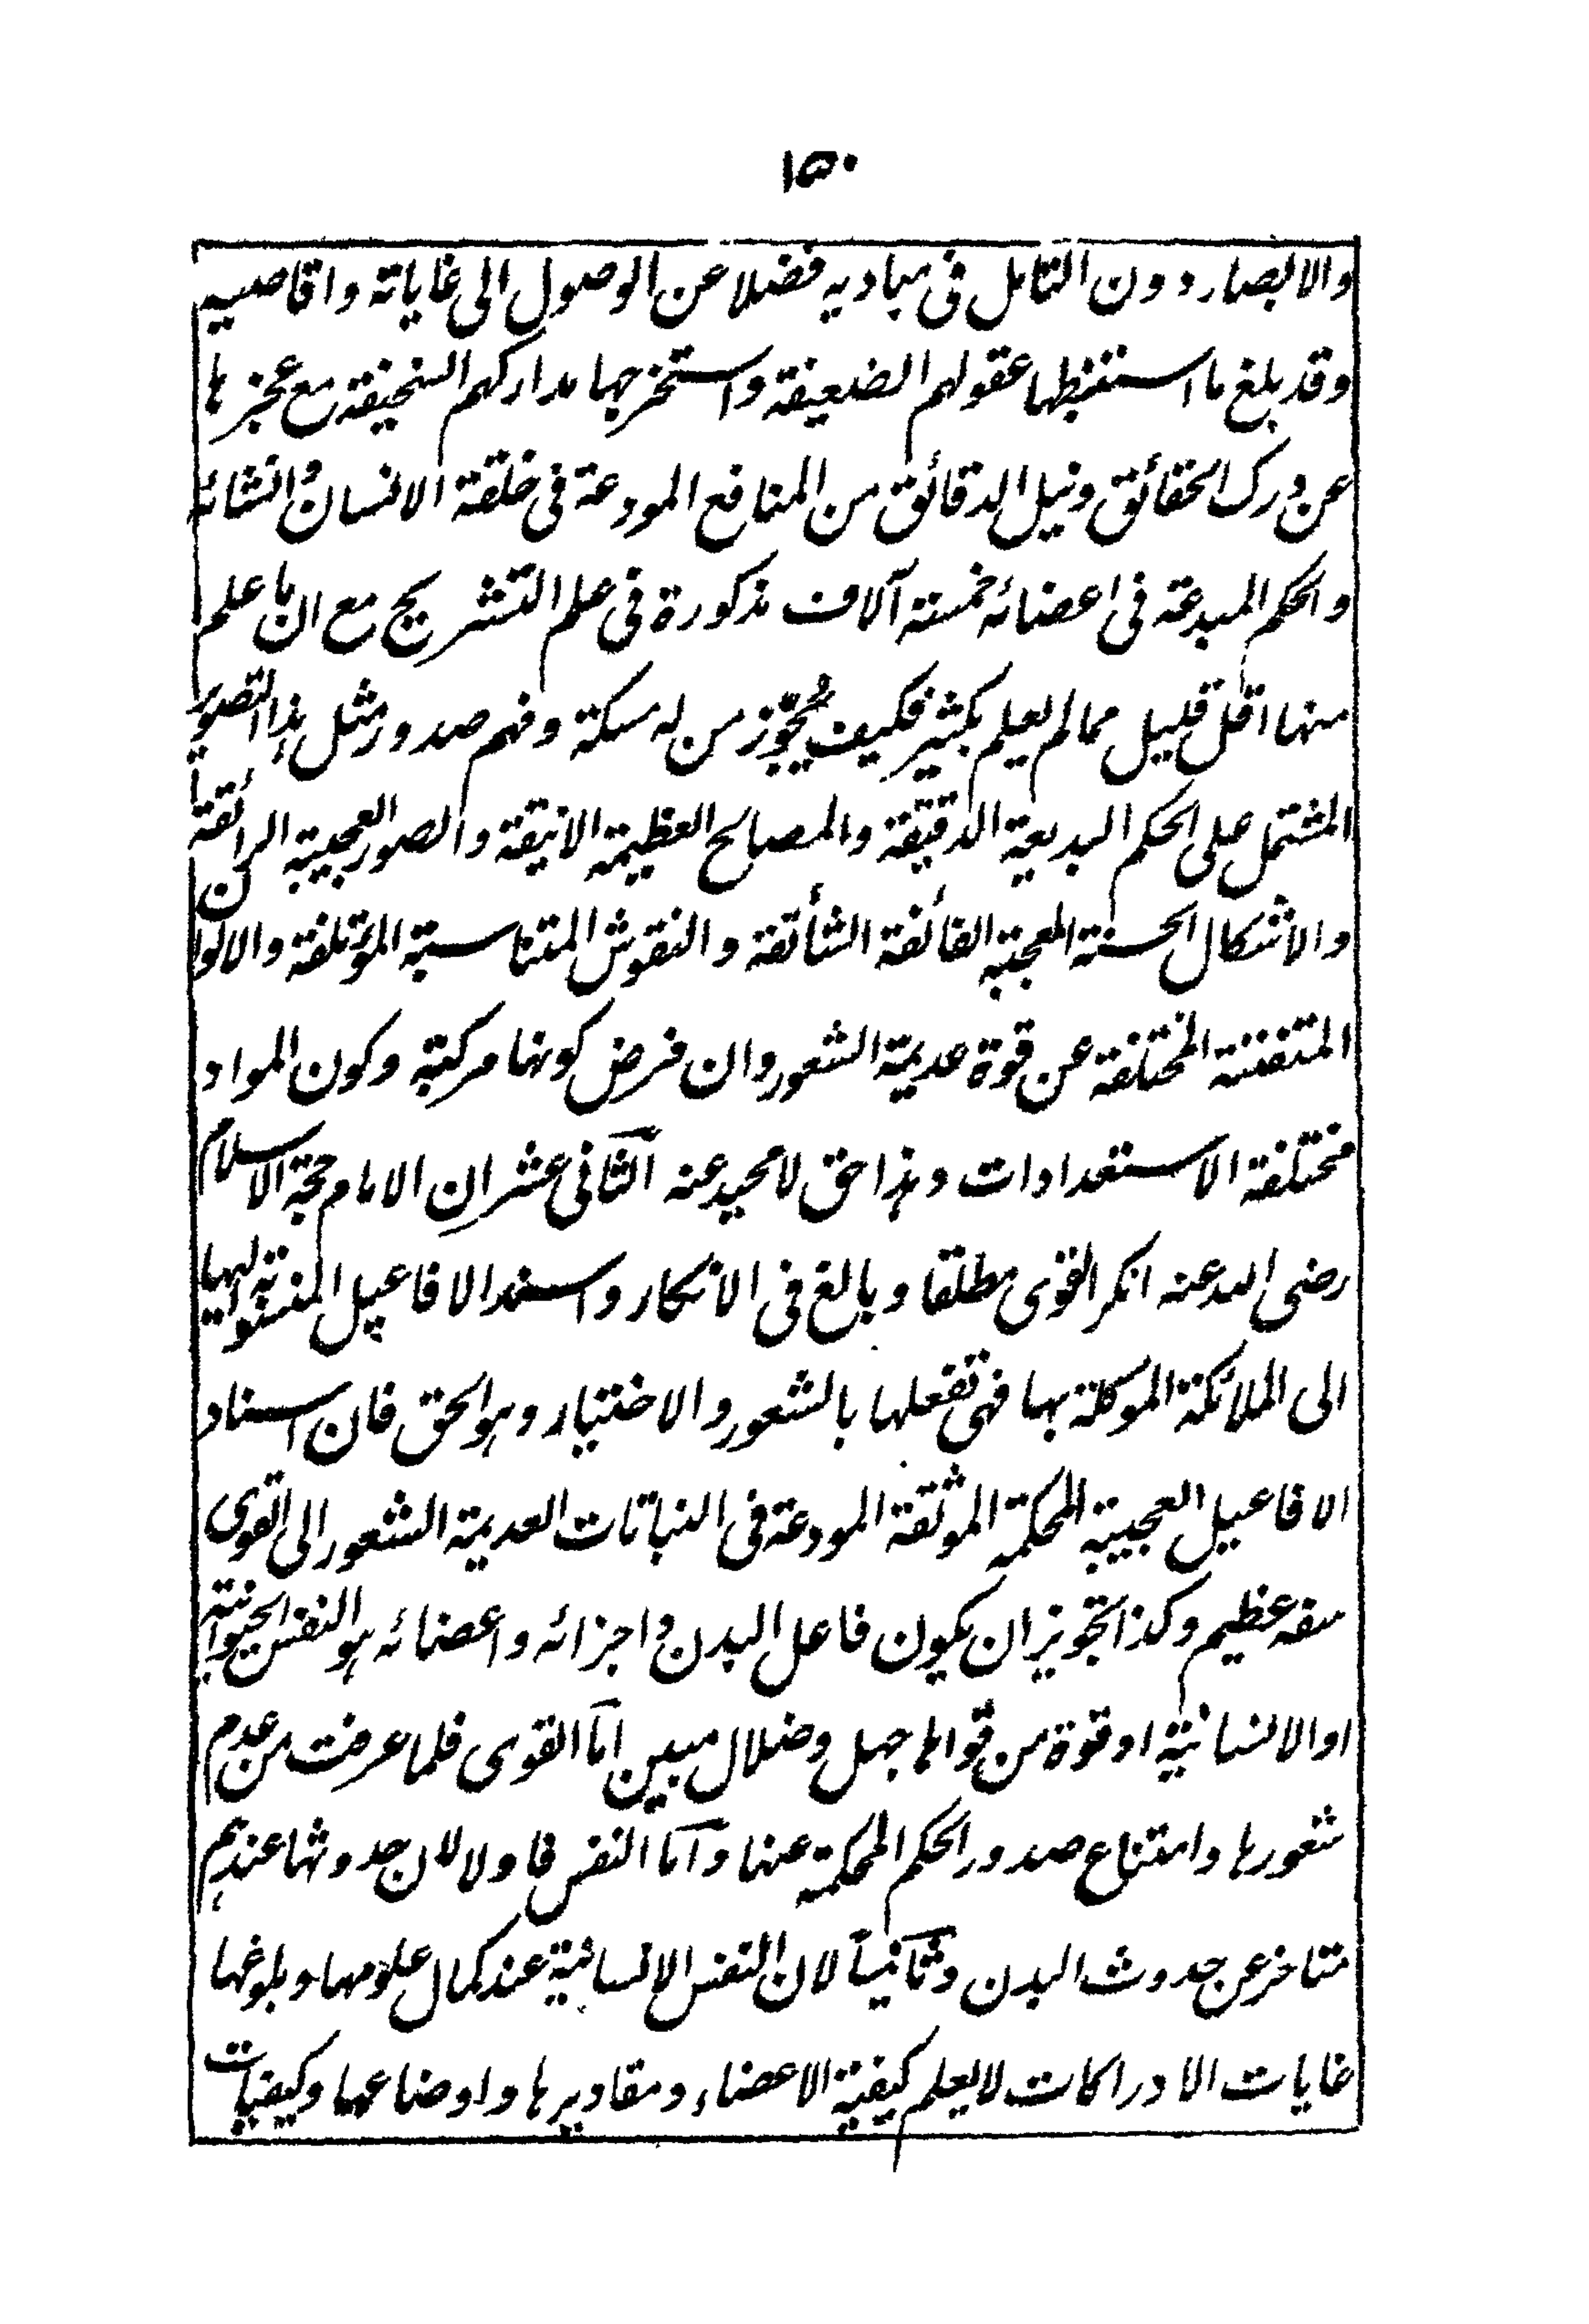 ١٥٠
والابصار دون التامل فى مباديه فضلا عن الوصول الى غاياته واقاصيه
وقد بلغ ما استنبطها عقولهم الضعيفة واستخرجها مداركهم السخيفة مع عجزها
عن درك الحقائق ونيل الدقائق من المنافع المودعة فى خلقة الانسان وانشائه
والحكم المبدعة فى اعضائه خمسة آلاف مذكورة فى علم التشريح مع ان ما علم
منها اقل قليل مما لم يعلم بكثير فكيف يُجوّز من له مسكة وفهم صدور مثل هذا التصوير
المشتمل على الحكم البديعة الدقيقة والمصالح العظيمة الانيقة والصور العجيبة الرائقة
والاشكال الحسنة المعجبة الفائقة الشائقة والنقوش المتناسبة المؤتلفة والالوان
المتفننة المختلفة عن قوة عديمة الشعور وان فرض كونها مركبة وكون المواد
مختلفة الاستعدادات وهذا حق لا محيد عنه الثانى عشر ان الامام حجة الاسلام
رضى الله عنه انكر القوى مطلقا وبالغ فى الانكار واسند الافاعيل المنسوبة اليها
الى الملائكة الموكلة بها فهى تفعلها بالشعور والاختيار وهو الحق فان اسناد
الافاعيل العجيبة المحكمة الموثقة المودعة فى النباتات العديمة الشعور الى القوى
سفه عظيم وكذا تجويز ان يكون فاعل البدن واجزائه واعضائه هو النفس الحيوانية
او الانسانية او قوة من قواها جهل وضلال مبين اما القوى فلما عرفت من عدم
شعورها وامتناع صدور الحكم المحكمة عنها واما النفس فاولا لان حدوثها عندهم
متاخر عن حدوث البدن وثانياً لان النفس الانسانية عند كمال علومها وبلوغها
غايات الادراكات لا يعلم كيفية الاعضاء ومقاديرها واوضاعها وكيفيات